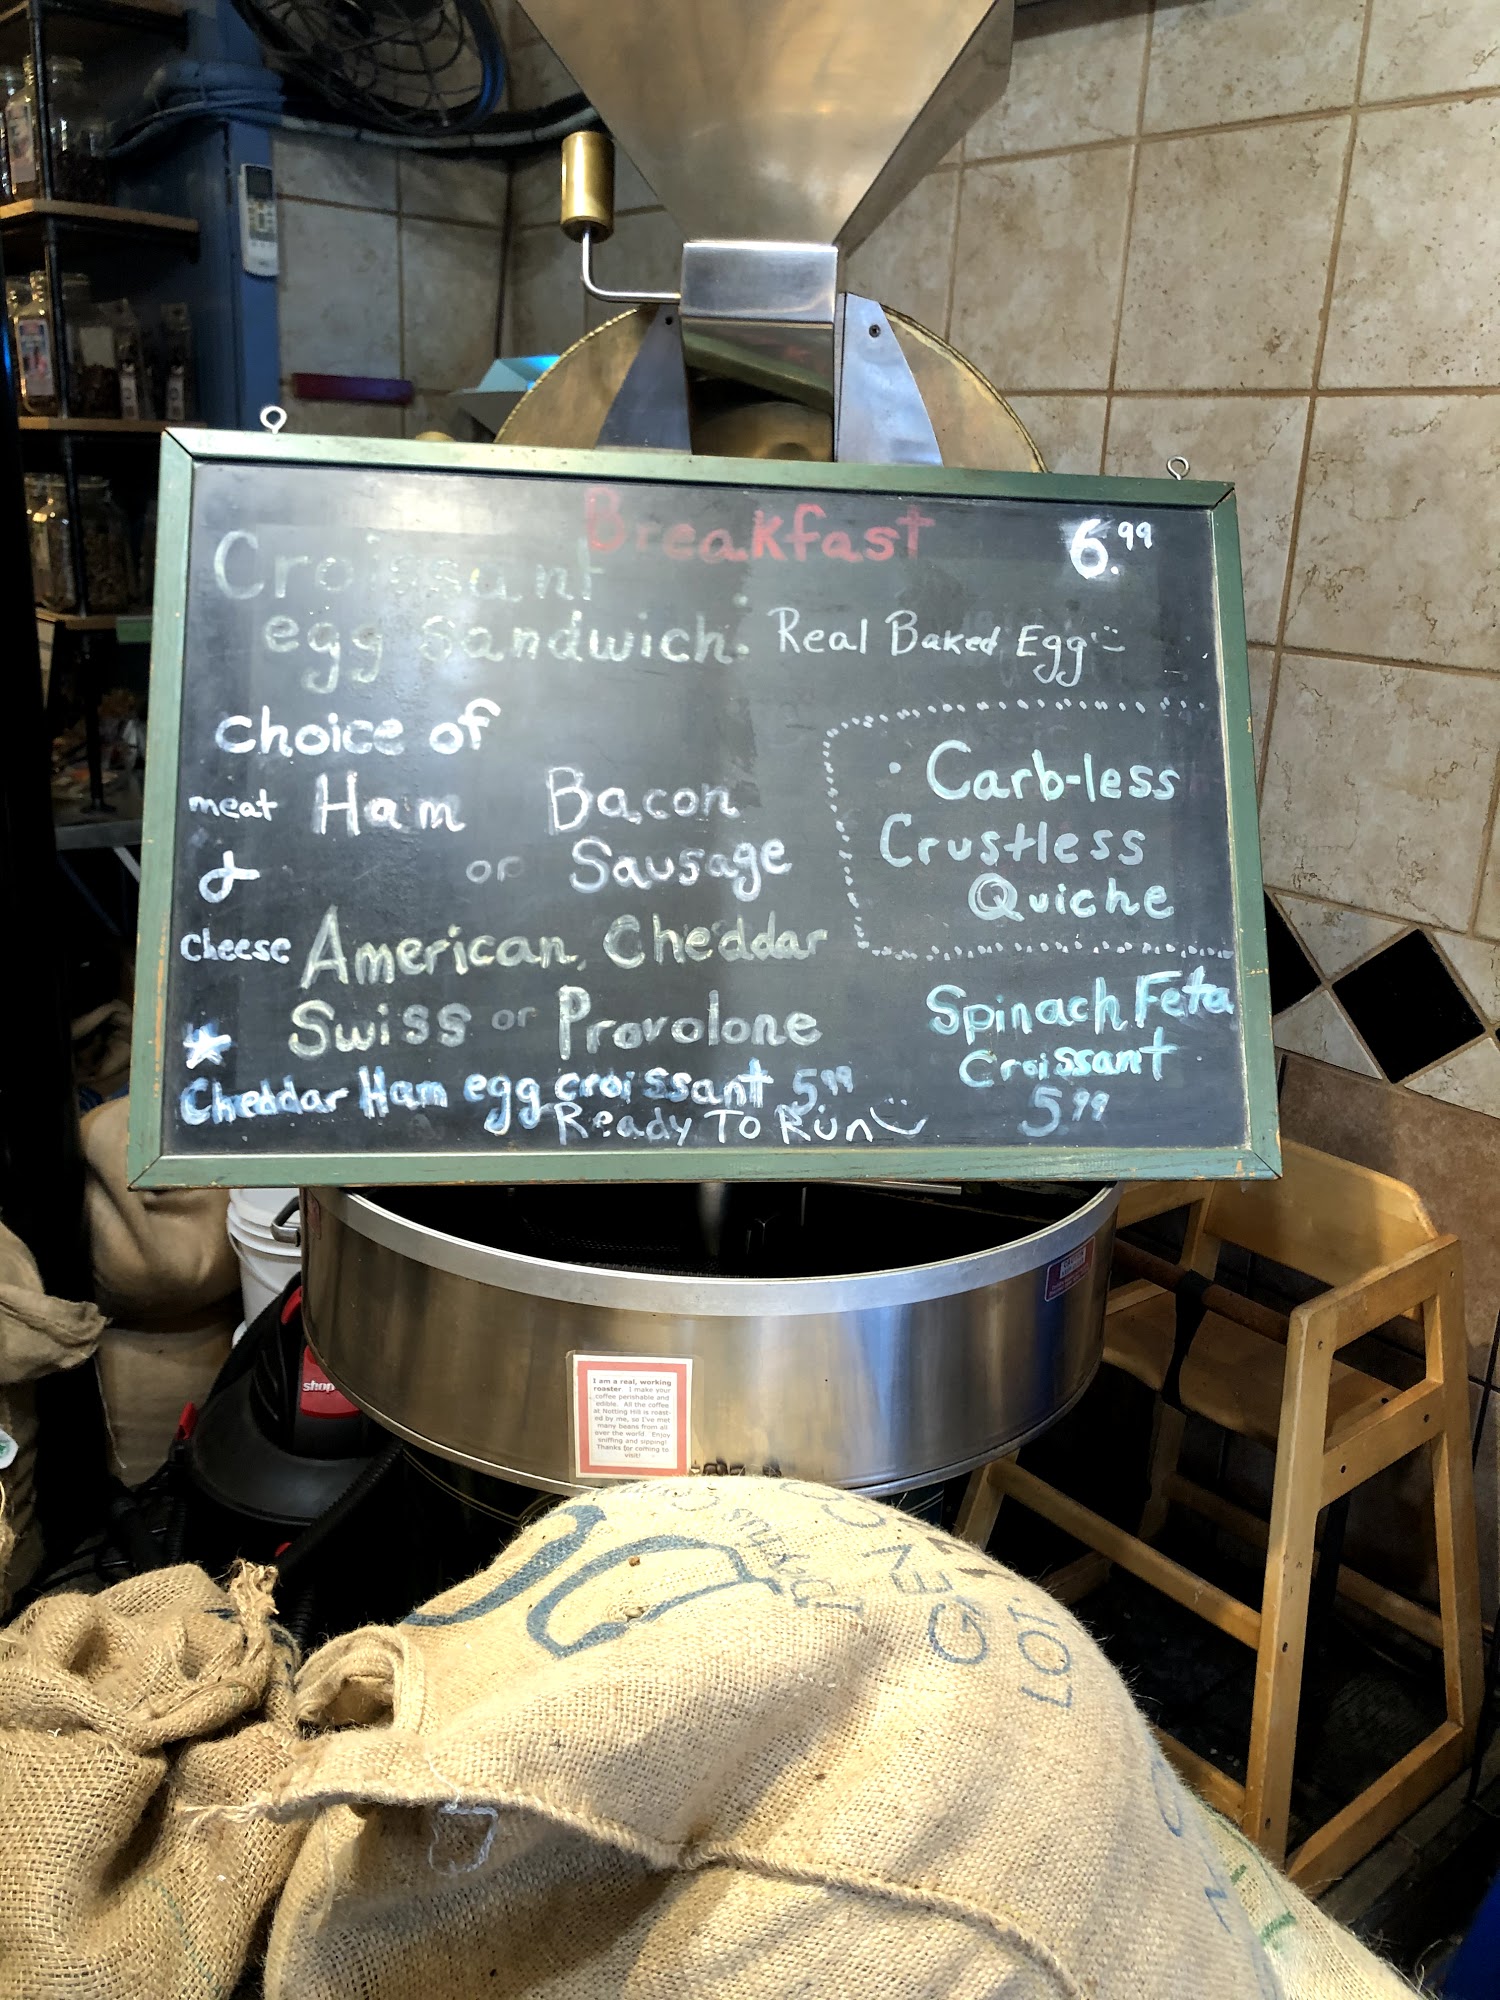 Breakfast
6.99
Croissant
egg sandwich. Real Baked Egg
choice of
meat Ham Bacon
& or Sausage
cheese American, Cheddar
Swiss or Provolone
Cheddar Ham egg croissant 5.99
Ready To Run
Carb-less
Crustless
Quiche
Spinach Feta
Croissant
5.99
shop
I am a real, working
roaster. I make your
coffee perishable and
edible. All the coffee
at Notting Hill is roast-
ed by me, so I've met
many beans from all
over the world. Enjoy
sniffing and sipping!
Thanks for coming to
visit!
LOT